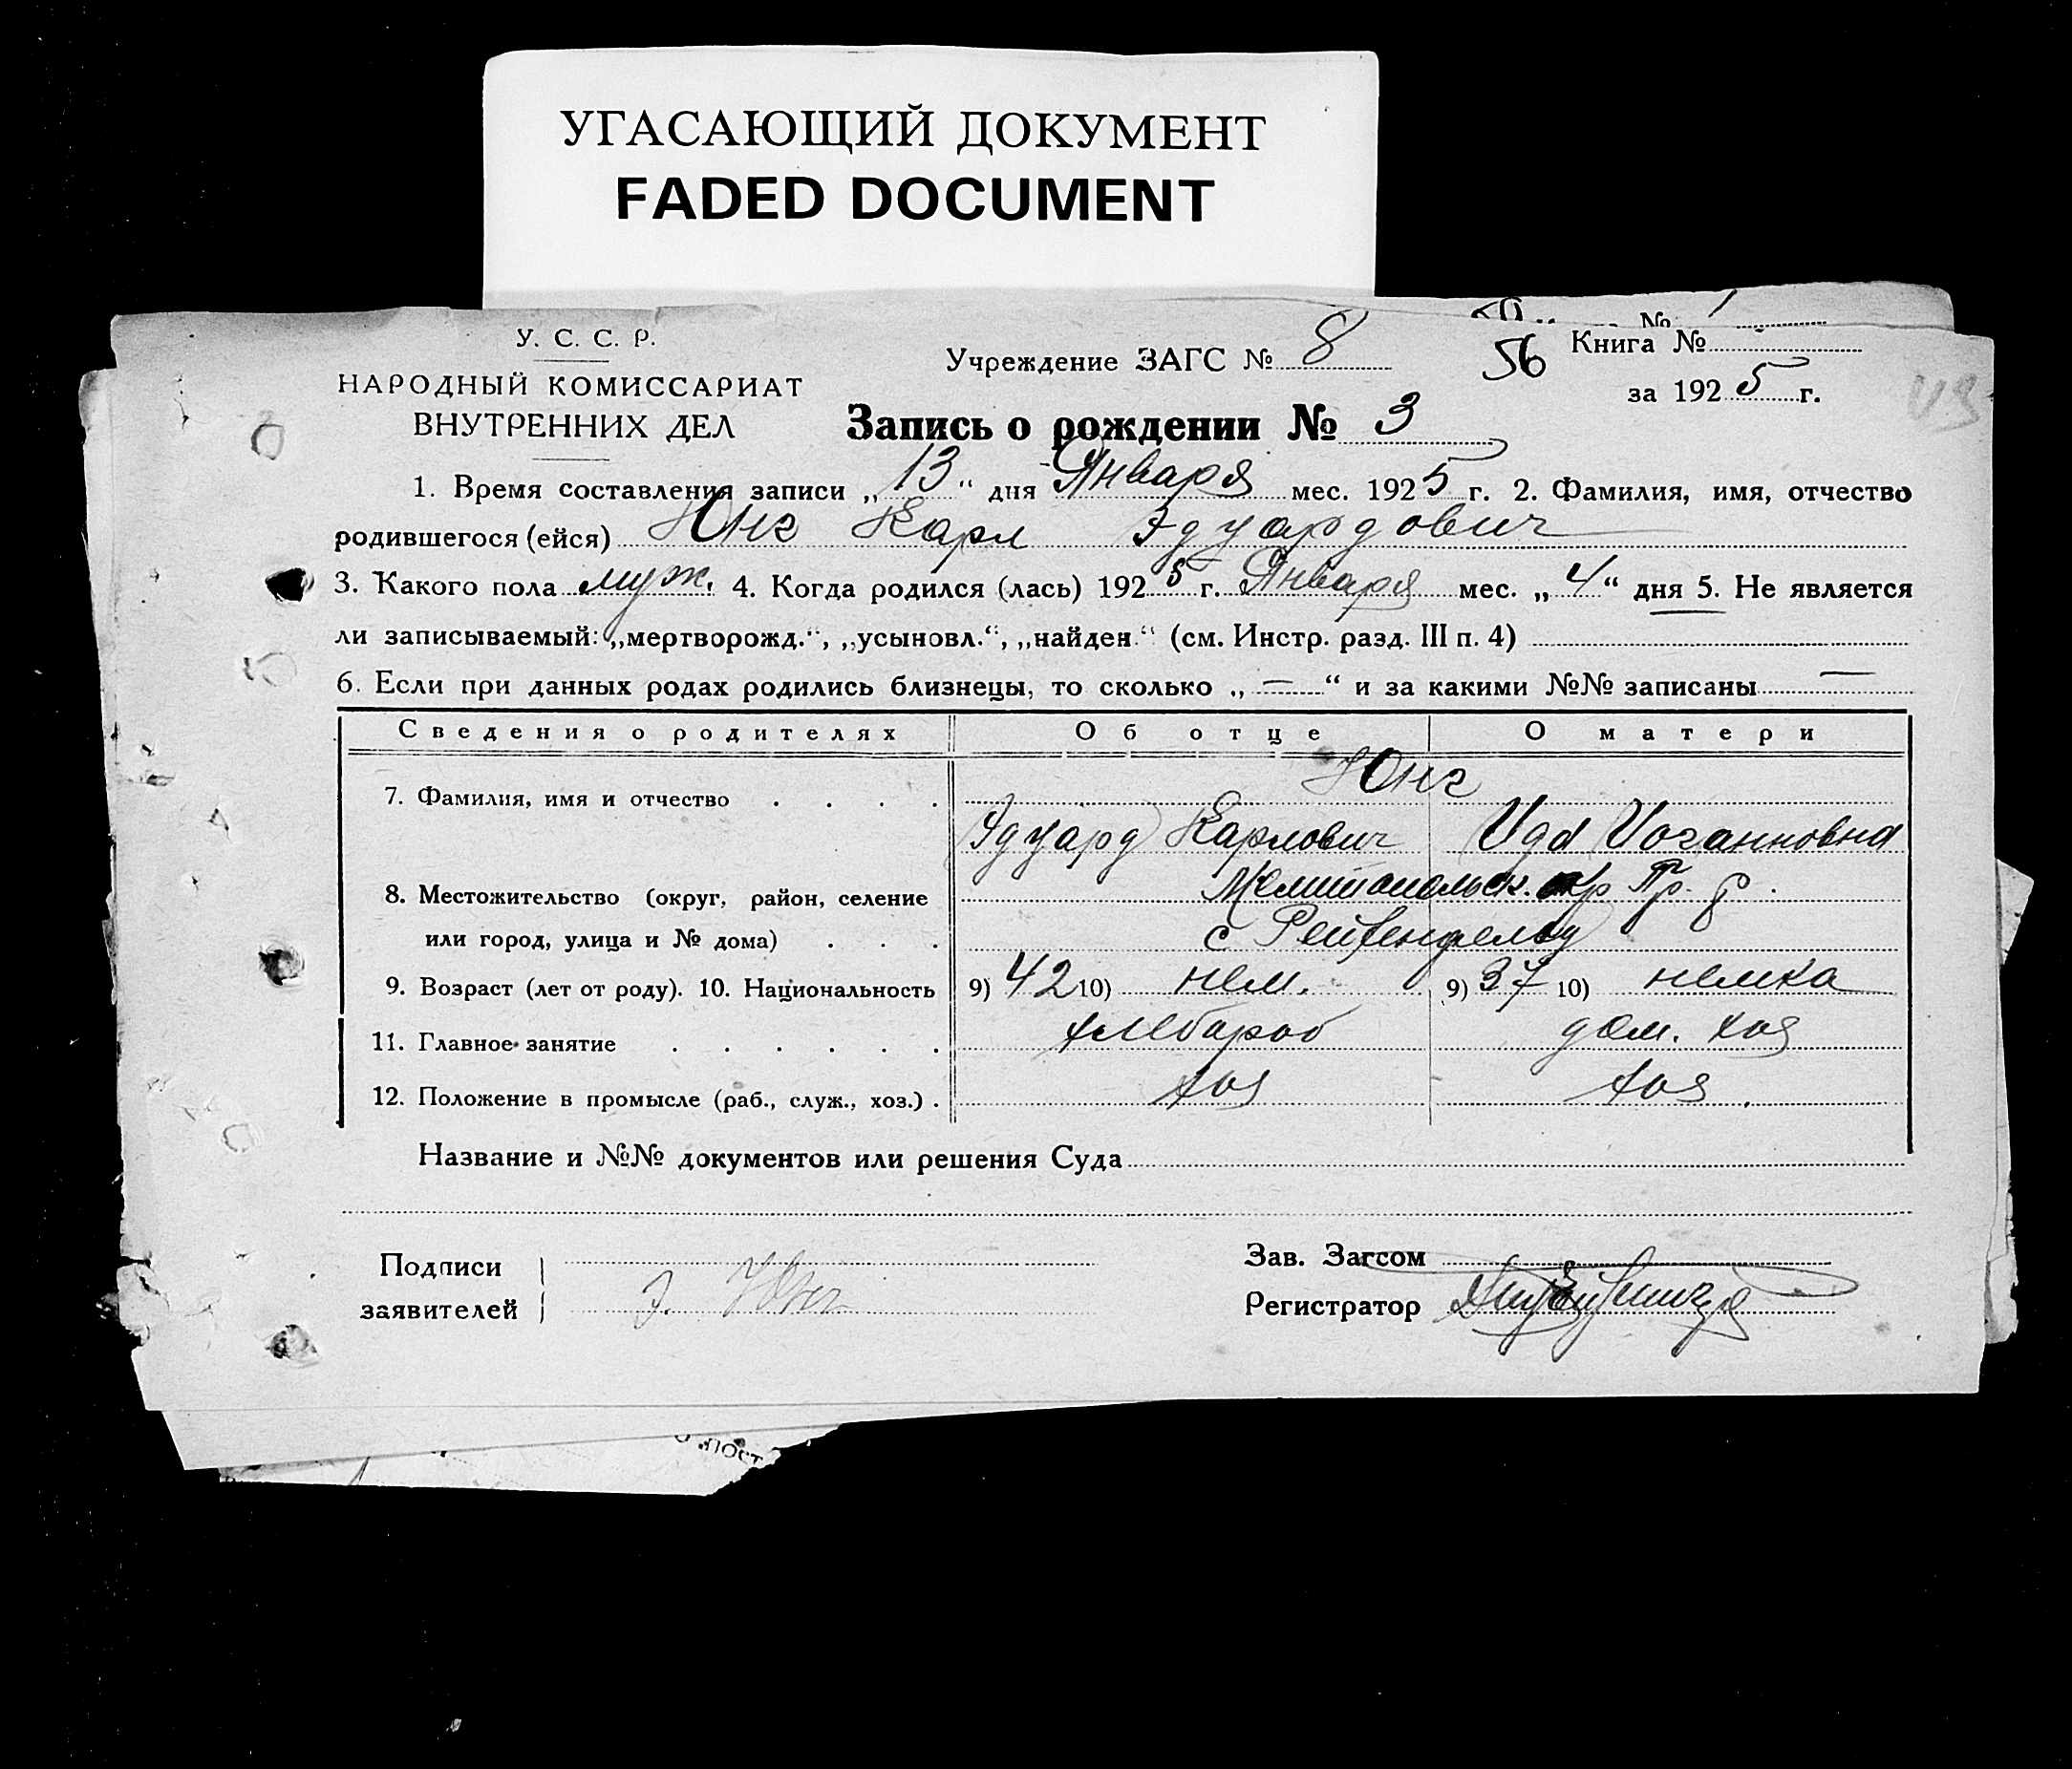 УГАСАЮЩИЙ ДОКУМЕНТ
FADED DOCUMENT
№
У. С. С. Р.
НАРОДНЫЙ КОМИССАРИАТ
ВНУТРЕННИХ ДЕЛ
Учреждение ЗАГС № 8
56
Книга №
за 1925 г.
Запись о рождении № 3
1. Время составления записи „13“ дня Января мес. 1925 г. 2. Фамилия, имя, отчество
родившегося (ейся) Юнг Карл Эдуардович
3. Какого пола муж. 4. Когда родился (лась) 1925 г. Января мес. „4“ дня 5. Не является
ли записываемый: „мертворожд.“, „усыновл.“, „найден.“ (см. Инстр. разд. III п. 4)
6. Если при данных родах родились близнецы, то сколько „—“ и за какими №№ записаны —
Сведения о родителях Об отце О матери
7. Фамилия, имя и отчество . . . . Юнг
Эдуард Карлович Ида Иоганновна
8. Местожительство (округ, район, селение Мелитопольск. окр Пр. р.
или город, улица и № дома) . . . с Рейхенфельд
9. Возраст (лет от роду). 10. Национальность 9) 42 10) нем. 9) 37 10) немка
11. Главное занятие . . . . . . хлебароб дом. хоз
12. Положение в промысле (раб., служ., хоз.) . хоз хоз.
Название и №№ документов или решения Суда
Подписи
заявителей
Э. Юнг
Зав. Загсом
Регистратор